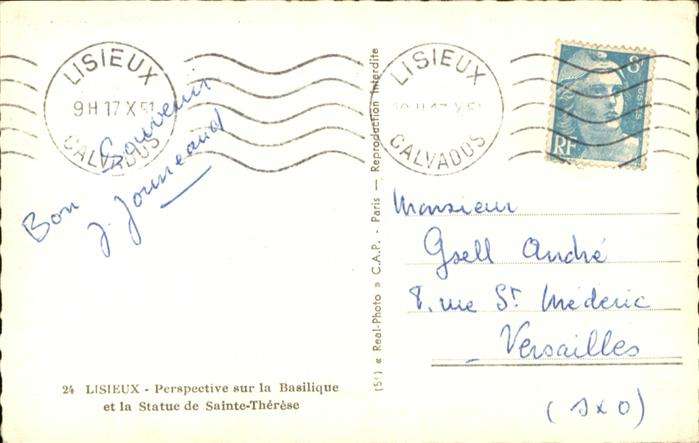 LISIEUX
9H 17 X 51
CALVADOS
LISIEUX
CALVADOS
8F
POSTES
RF
Bon Souvenir
J. Jouneaud
Monsieur
Gsell André
8, rue St Médéric
Versailles
(S x O)
24 LISIEUX - Perspective sur la Basilique
et la Statue de Sainte-Thérèse
(51) « Real-Photo » C.A.P. - Paris — Reproduction interdite